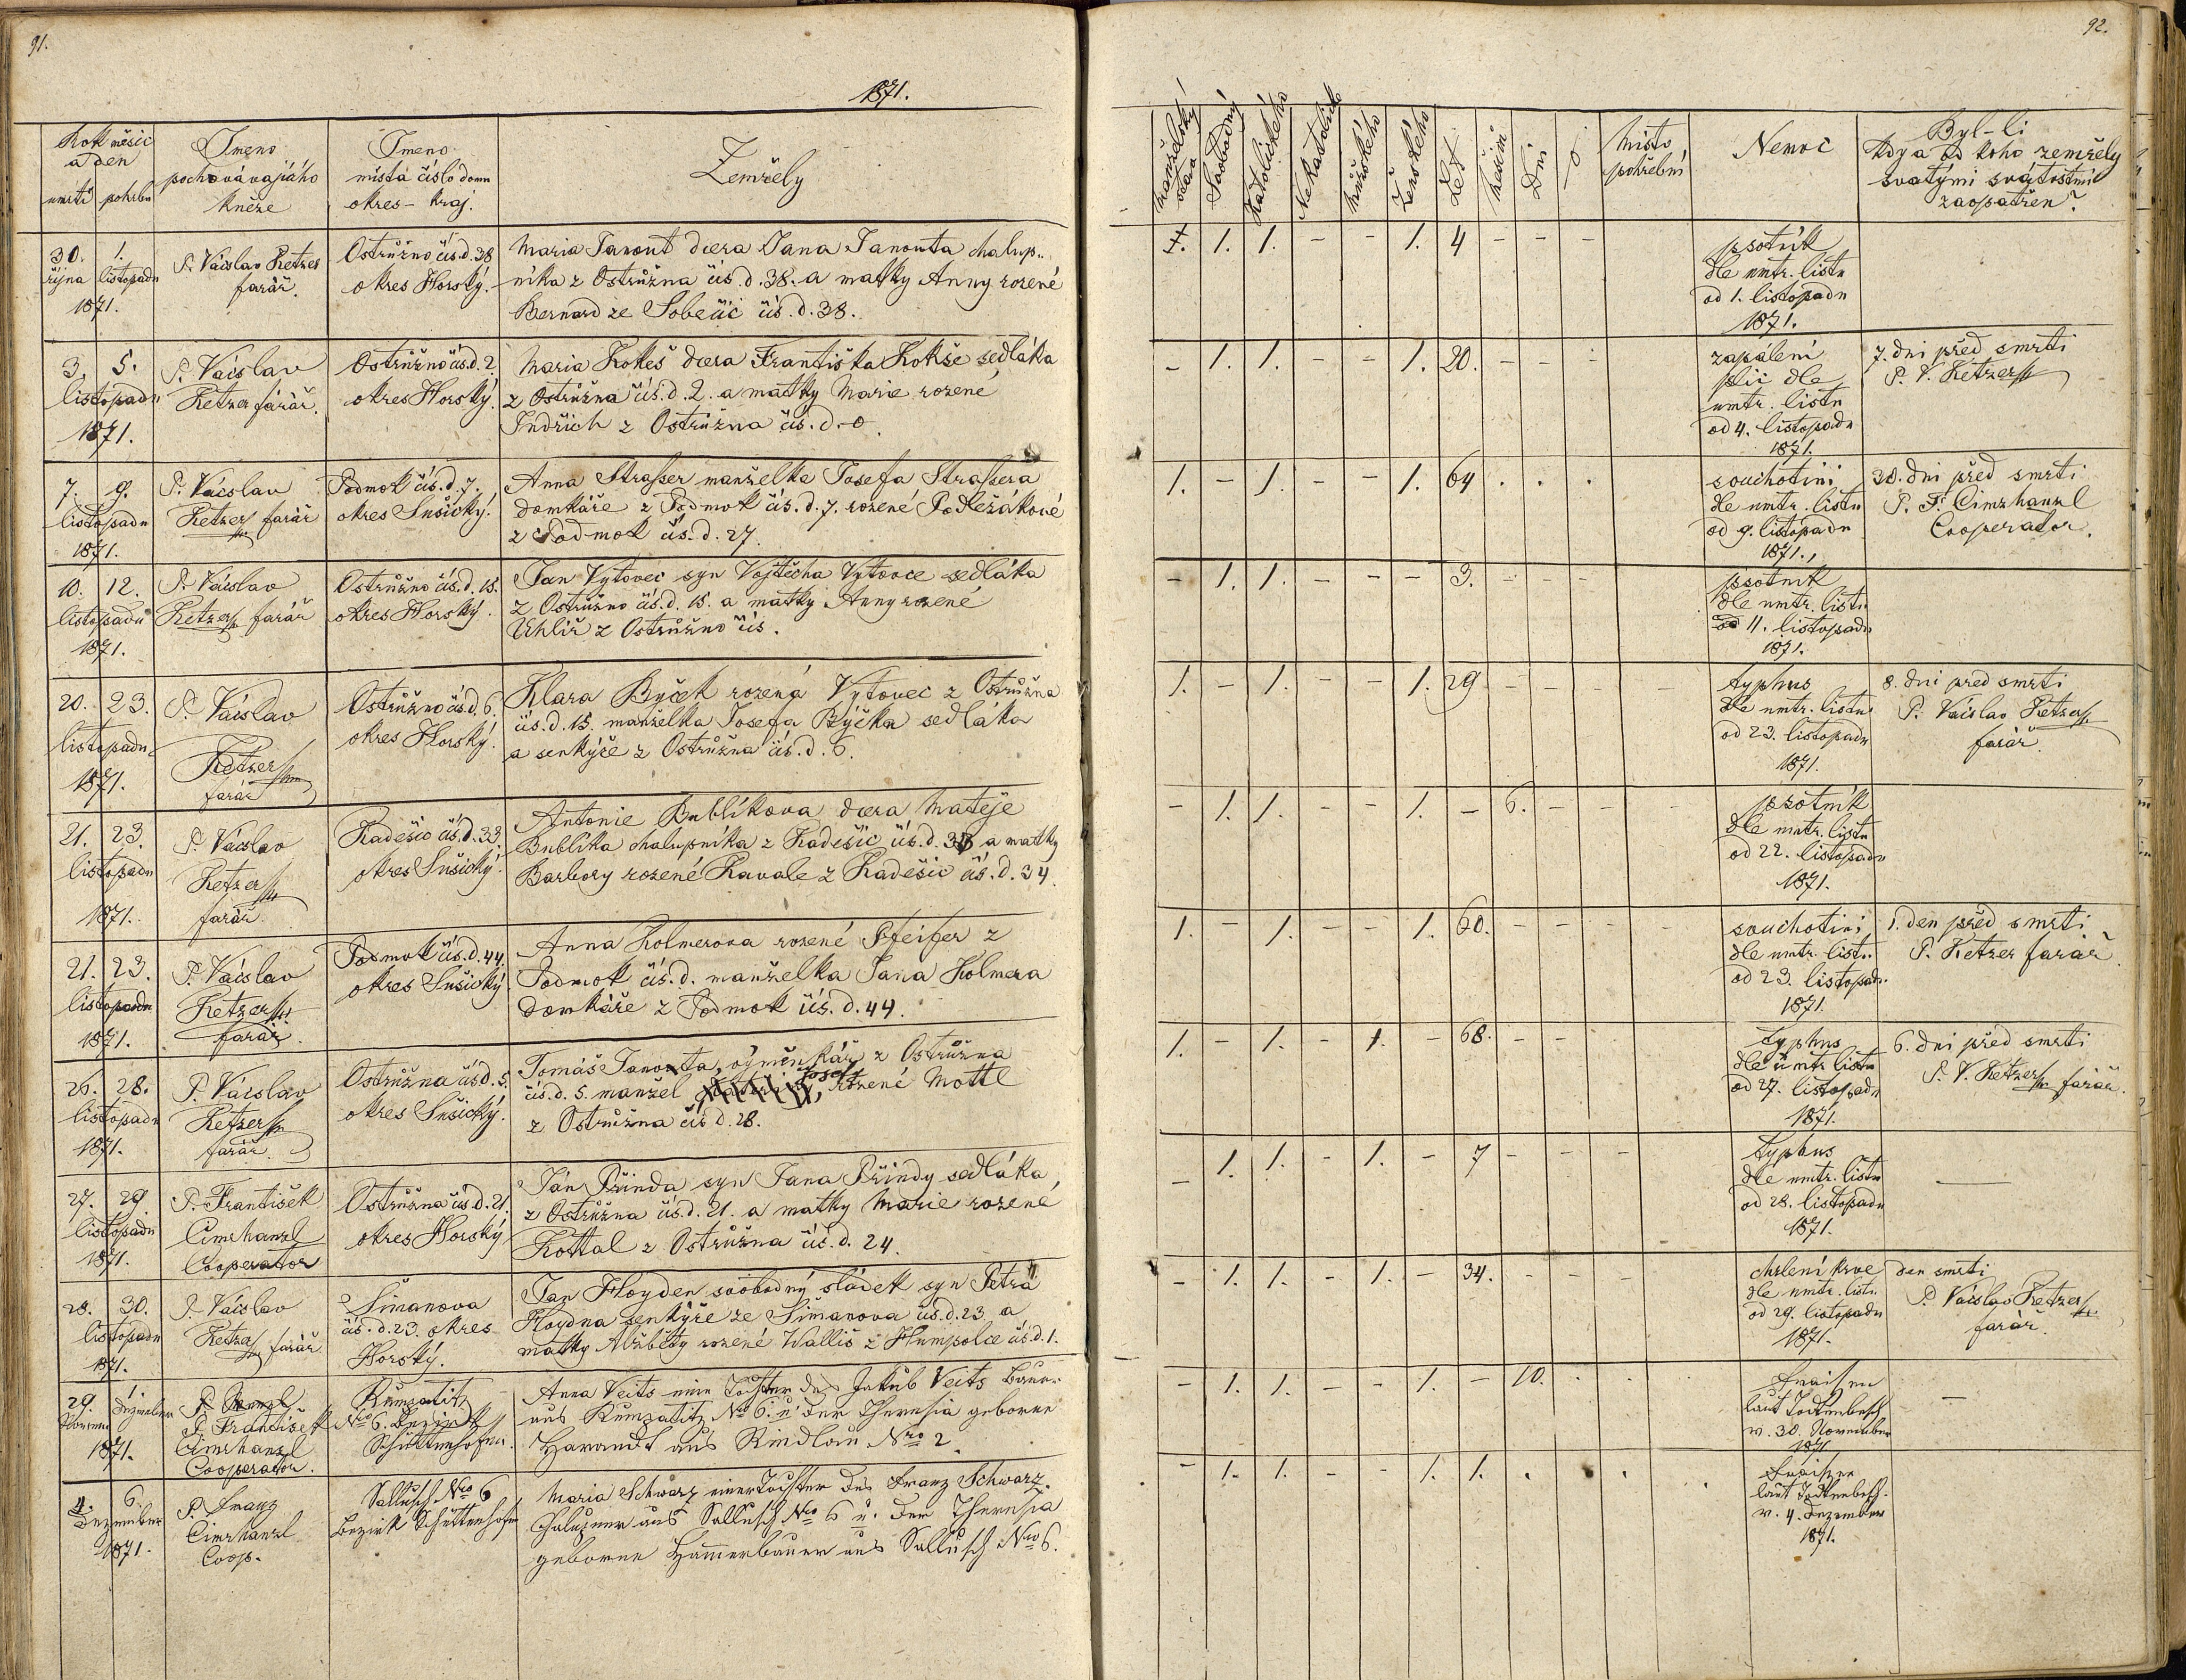 91.
1871.
Rok měsíc
a den
umrtí pohrbu
Jmeno
pochovávajícího
kněze
Jmeno
místa číslo domu
okres - kraj.
Zemřely
30. 1.
října listopadu
1871.
P. Václav Ketzer
farář.
Ostrůžno čís. d. 38
okres Horský.
Maria Janout dcera Jana Janouta chalup-
níka z Ostrůžna čís. d. 38. a matky Anny rozené
Bernard ze Soběčic čís. d. 38.
3. 5.
listopadu
1871.
P. Václav
Ketzer farář.
Ostrůžno čís. d. 2.
okres Horský.
Maria Kokeš dcera Františka Kokše sedláka
z Ostrůžna čís. d. 2. a matky Marie rozené
Jndřich z Ostrůžna čís. d. 0.
7. 9.
listopadu
1871.
P. Václav
Ketzer farář
Podmok čís. d. 7.
okres Sušický.
Anna Straßer manželka Josefa Straßera
domkáře z Podmok čís. d. 7. rozené Podležákové
z Podmok čís. d. 27.
10. 12.
listopadu
1871.
P. Václav
Ketzer farář
Ostrůžno čís. d. 15.
okres Horský.
Jan Vytovec syn Vojtěcha Vytovce sedláka
z Ostrůžno čís. d. 15. a matky Anny rozené
Uhlíř z Ostrůžno čís.
20. 23.
listopadu
1871.
P. Václav
Ketzer
farář
Ostrůžno čís. d. 6.
okres Horský.
Klara Byček rozená Vytovec z Ostrůžna
čís. d. 15. manželka Josefa Býčka sedláka
a šenkýře z Ostrůžna čís. d. 6.
21. 23.
listopadu
1871.
P. Václav
Ketzer
farář.
Kadešic čís. d. 33.
okres Sušický.
Antonie Bublíkova dcera Matěje
Bublíka chalupníka z Kadešic čís. d. a matky
Barbory rozené Kavale z Kadešic čís. d. 34.
21. 23.
listopadu
1871.
P. Václav
Ketzer
farář.
Podmok čís. d. 44.
okres Sušický
Anna Kolmerova rozené Pfeifer z
Podmok čís. d. manželka Jana Kolmera
domkáře z Podmok čís. d. 44.
26. 28.
listopadu
1871.
P. Václav
Ketzer
farář.
Ostrůžna čís. d. 5.
okres Sušický.
Tomáš Janouta, výměnkář z Ostrůžna
čís. d. 5. manžel rozené Mottl
z Ostrůžna čís d. 28.
27. 29.
listopadu
1871.
P. František
Cimrhanzl
Cooperator
Ostrůžna čís. d. 21.
okres Horský
Ján Přinda syn Jana Přindy sedláka
z Ostrůžna čís. d. 21. a matky Marie rozené
Kottal z Ostrůžna čís. d. 24.
28. 30.
listopadu
1871.
P. Václav
Ketzer farář
Šimanova
čís. d. 23. okres
Horský.
Jan Hoyden svobodný sládek syn Petra
Hoydna šenkýře ze Šimanova čís. d. 23 a
matky Alžběty rozené Wallis z Humpolce čís. d. 1.
29. 1.
Novem Dezember
1871.
P. František
Cimrhanzl
Cooperator.
Kumpatitz
Nro 6. Bezirk
Schüttenhofen.
Anna Veits eine Tochter des Jakub Veits Bauer
aus Kumpatitz Nro 6. u. der Theresia geborne
Harandt aus Rindlau Nro 2.
4. 6.
Dezember
1871.
P. Franz
Cimrhanzl
Coop.
Sallusch Nro 6
Bezirk Schüttenhofen
Maria Schwarz einer Tochter des Franz Schwarz
Chalupner aus Sallusch Nro 6 u. der Theresia
geborene Hammerbauer aus Sallusch Nro 6.
92.
manželský
stav
Svobodný
Katolického
Nekatolick
Mužského
Ženského
Let
Měsíců
Dni
místo
pohřební
Nemoc
Byl-li
kdy a od koho zemřely
svatými svátostmi
zaopatřen?
1. 1. - - 1. 4 - - -
psotník
dle umtr. listu
od 1. listopadu
1871.
- 1. 1. - - 1. 20. - -
zapálení
plic dle
umtr. listu
od 4. listopadu
1871.
7. dni před smrti
P. V. Ketzer
1. - 1. - - 1. 64 . . .
souchotini
dle umtr. listu
od 9. listopadu
1871.
30. dni před smrti
P. F. Cimrhanzl
Cooperator.
- 1. 1. - - - 3. - - -
psotník
dle umtr. listu
od 11. listopadu
1871.
1. - 1. - - 1. 29 - - - -
typhus
dle umtr. listu
od 23. listopadu
1871.
8. dni před smrti
P. Václav Ketzer
farář.
- 1. 1. - - 1. - 6. - - -
psotník
dle umtr. listu
od 22. listopadu
1871.
1. - 1. - - 1. 60. - - - -
souchotini
dle umtr. listu
od 23. listopadu
1871.
1. den před smrti
P. Ketzer farář.
1. - 1. - 1. - 68. - - -
typhus
dle umtr. listu
od 27. listopadu
1871.
6. dni před smrti
P. V. Ketzer farář.
- 1. 1. - 1. - 7 - - - -
typhus
dle umtr. listu
od 28. listopadu
1871.
—
- 1. 1. - 1. - 34. - - -
chrlení krve
dle umtr. listu
od 29. listopadu
1871.
den smrti
P. Václav Ketzer
farář.
- 1. 1. - - 1. - 10. . . .
Fraisen
laut Todtenbesch
v. 30. November
1871
—
- 1. 1. - - 1. 1. . . . .
Fraisen
laut Todtenbesch.
v. 4. Dezember
1871.